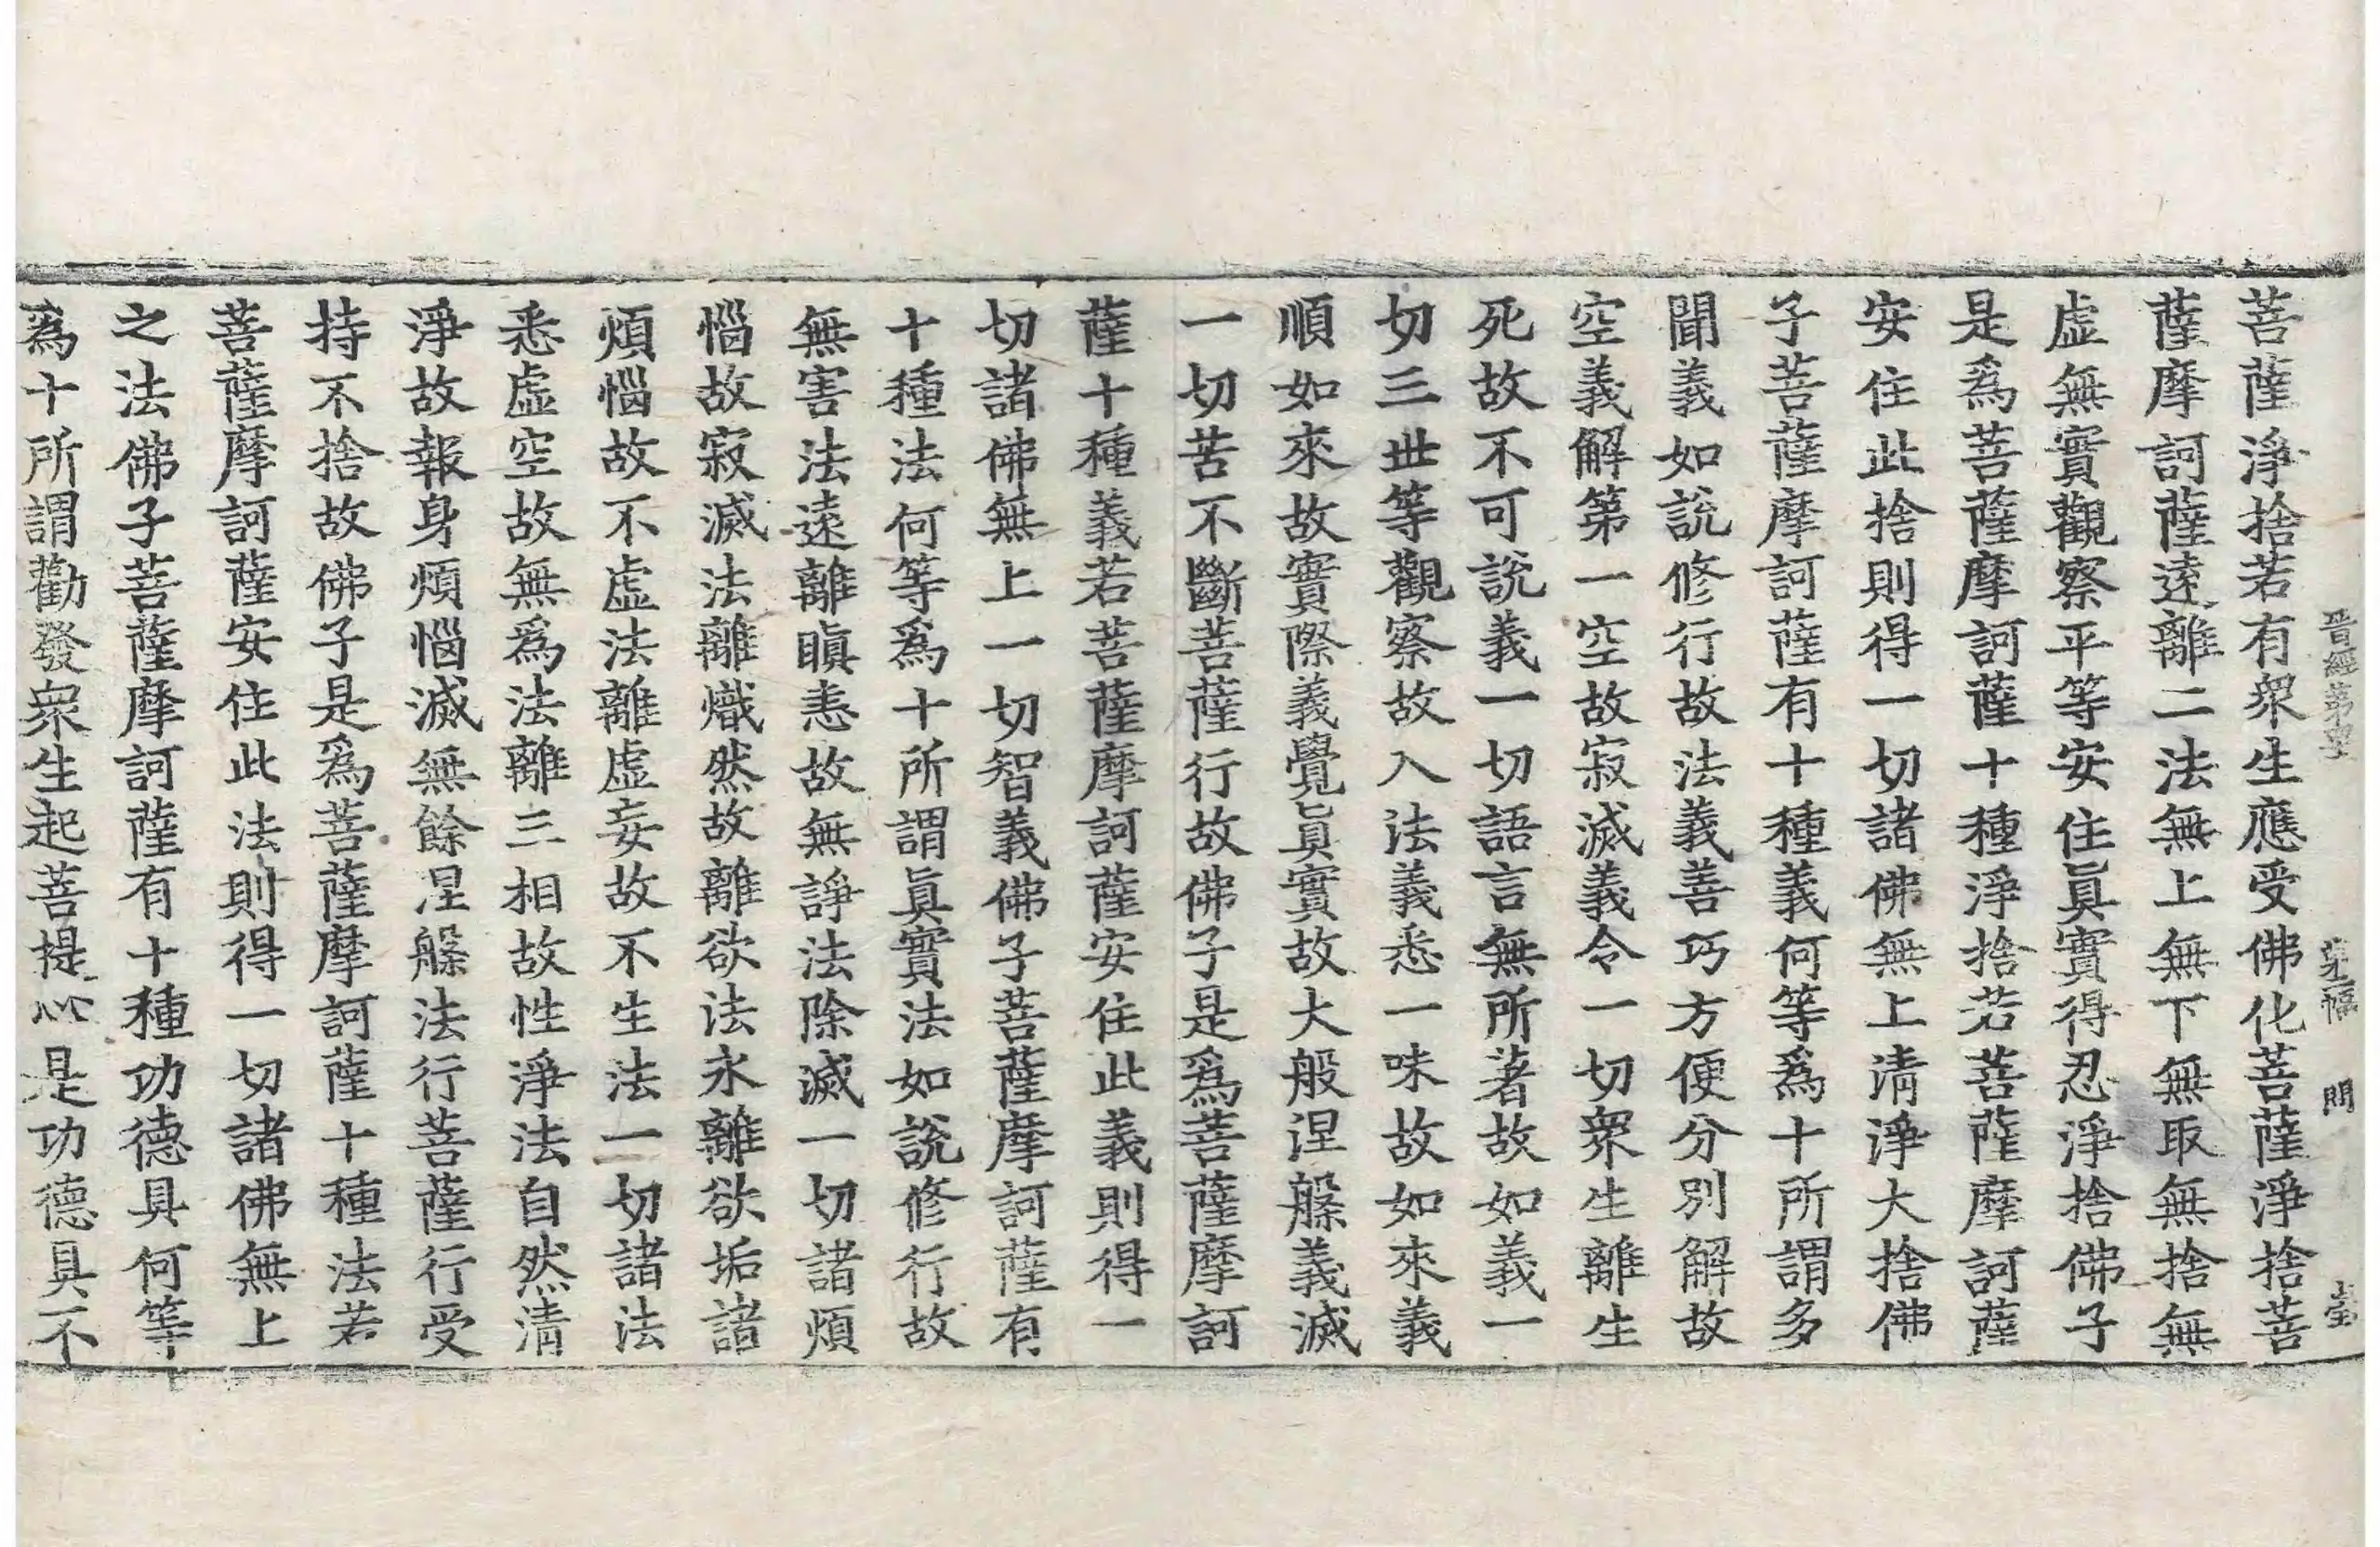 晉經第
問
菩薩淨捨若有衆生應受佛化菩薩淨捨菩
薩摩訶薩遠離二法無上無下無取無捨無
虛無實觀察平等安住眞實得忍淨捨佛子
是爲菩薩摩訶薩十種淨捨若菩薩摩訶薩
安住此捨則得一切諸佛無上清淨大捨佛
子菩薩摩訶薩有十種義何等爲十所謂多
聞義如說修行故法義善巧方便分別解故
空義解第一空故寂滅義令一切衆生離生
死故不可說義一切語言無所著故如義一
切三世等觀察故入法義悉一味故如來義
順如來故實際義覺眞實故大般涅槃義滅
一切苦不斷菩薩行故佛子是爲菩薩摩訶
薩十種義若菩薩摩訶薩安住此義則得一
切諸佛無上一切智義佛子菩薩摩訶薩有
十種法何等爲十所謂眞實法如說修行故
無害法遠離瞋恚故無諍法除滅一切諸煩
惱故寂滅法離熾然故離欲法永離欲垢諸
煩惱故不虛法離虛妄故不生法一切諸法
悉虛空故無爲法離三相故性淨法自然清
淨故報身煩惱滅無餘涅槃法行菩薩行受
持不捨故佛子是爲菩薩摩訶薩十種法若
菩薩摩訶薩安住此法則得一切諸佛無上
之法佛子菩薩摩訶薩有十種功德具何等
爲十所謂勸發衆生起菩提心是功德具不